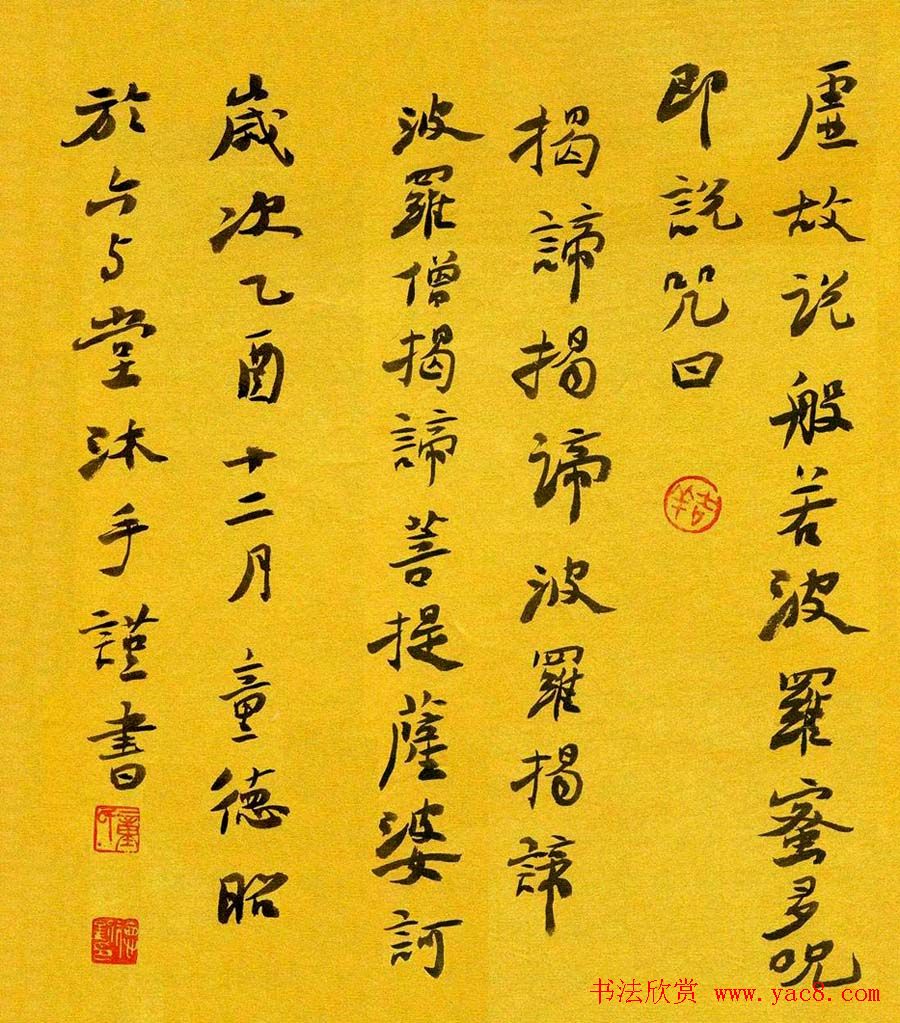 虛故说般若波羅蜜多呪
即說咒曰
揭諦揭諦波羅揭諦
波羅僧揭諦菩提薩婆訶
歲次乙酉十二月童德昭
於六与堂沐手謹書
书法欣赏 www.yac8.com